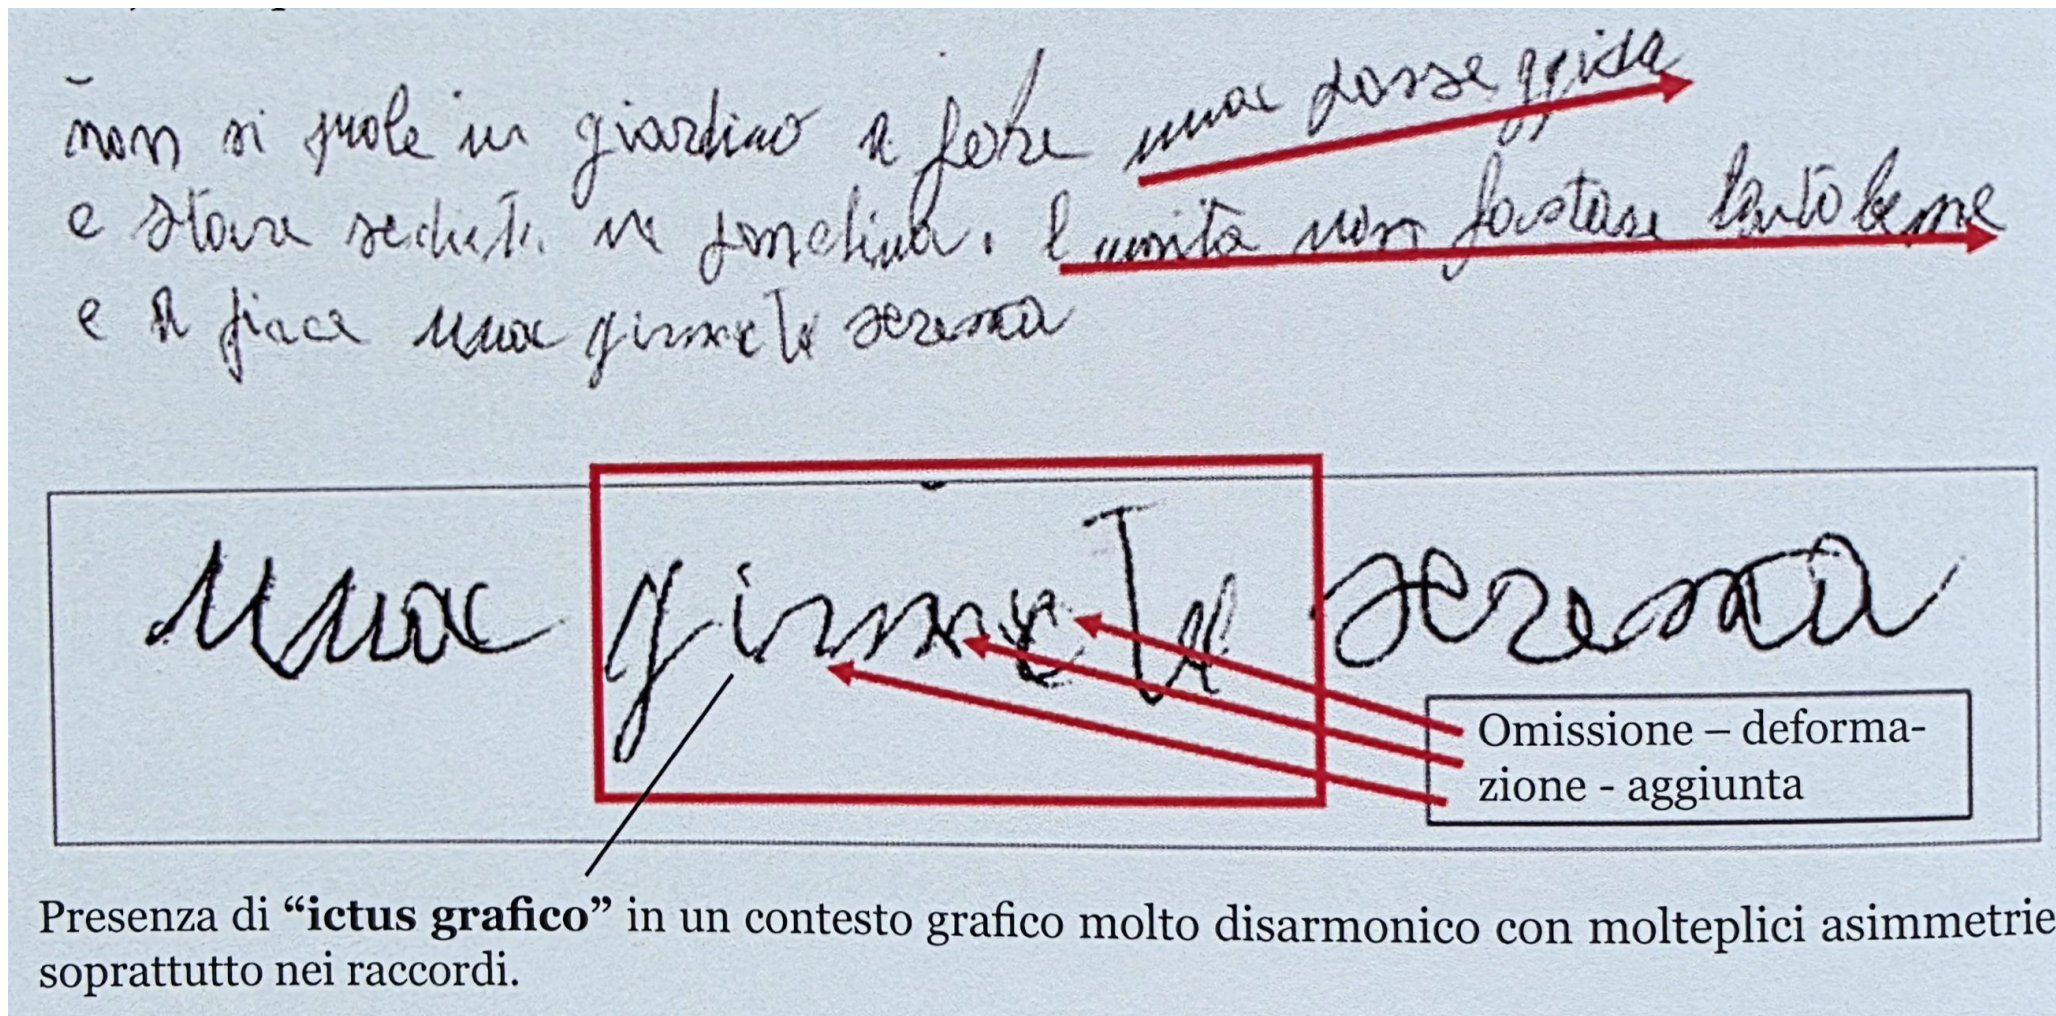 non si puole in giardino a fare una passeggisa
e stare seduti in panchina. l unita non fastare tanto bene
e a piace una girnete serena
una girnete serena
Omissione – deforma-
zione - aggiunta
Presenza di “ictus grafico” in un contesto grafico molto disarmonico con molteplici asimmetrie
soprattutto nei raccordi.